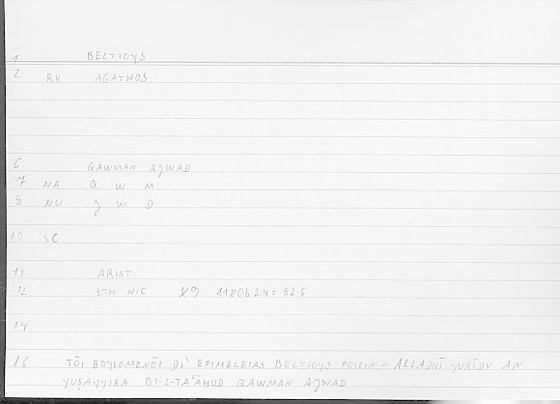 1 BELTIOYS
2 RV AGATHOS
6 QAWMAN AJWAD
7 NA Q W M
8 NU J W D
10 SC
11 ARIST
12 ETH NIC X9 1180b24 = 82.6
14
16 TŌI BOYLOMENŌI DI' EPIMELEIAS BELTIOYS POIEIN - ALLADHĪ YURĪDU AN
YUṢAYYIRA BI-L-TAʿAHUD QAWMAN AJWAD